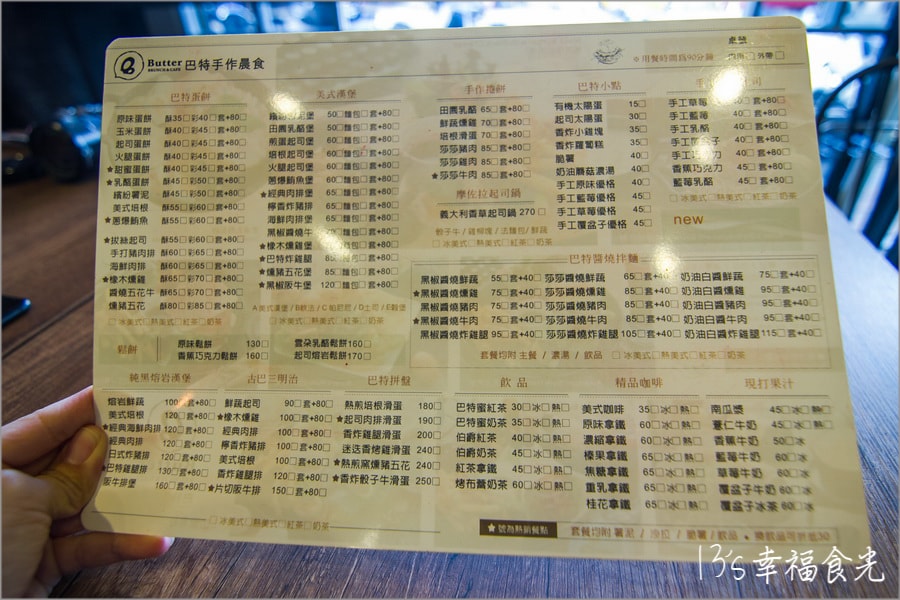 Butter 巴特手作晨食
BRUNCH & CAFE
桌號
※用餐時間為90分鐘
內用□ 外帶□
巴特蛋餅
原味蛋餅 酥35□彩40□套+80□
玉米蛋餅 酥40□彩45□套+80□
起司蛋餅 酥40□彩45□套+80□
火腿蛋餅 酥40□彩45□套+80□
★甜蜜蛋餅 酥40□彩45□套+80□
★乳酪蛋餅 酥45□彩50□套+80□
繽紛薯泥 酥45□彩50□套+80□
美式培根 酥50□彩55□套+80□
★蔥爆鮪魚 酥50□彩55□套+80□
★拔絲起司 酥55□彩60□套+80□
手打豬肉排 酥55□彩60□套+80□
海鮮肉排 酥60□彩65□套+80□
★橡木燻雞 酥60□彩65□套+80□
醬燒五花牛 酥65□彩70□套+80□
燻豬五花 酥80□彩85□套+80□
□冰美式□熱美式□紅茶□奶茶
美式漢堡
50□麵包□套+80□
田園乳酪堡 50□麵包□套+80□
煎蛋起司堡 60□麵包□套+80□
培根起司堡 60□麵包□套+80□
火腿起司堡 60□麵包□套+80□
蔥爆鮪魚堡 60□麵包□套+80□
★經典肉排堡 65□麵包□套+80□
檸香炸豬堡 65□麵包□套+80□
海鮮肉排堡 65□麵包□套+80□
黑椒醬燒牛
★橡木燻雞堡
★巴特炸雞腿 85□
★燻豬五花堡 85□麵包□套+80□
黑椒阪牛堡 120□麵包□套+80□
□冰美式□熱美式□紅茶□奶茶
手作捲餅
田園乳酪 65□套+80□
鮮蔬燻雞 70□套+80□
培根滑蛋 70□套+80□
莎莎豬肉 85□套+80□
莎莎雞肉 85□套+80□
★莎莎牛肉 85□套+80□
摩佐拉起司鍋
義大利香草起司鍋 270□
骰子牛/雞柳塊/法麵包/鮮蔬
□冰美式□熱美式□紅茶□奶茶
巴特小點
有機太陽蛋 15□
起司太陽蛋 30□
香炸小雞塊 35□
香炸蘿蔔糕 35□
脆薯 40□
奶油蘑菇濃湯 40□
手工原味優格 40□
手工藍莓優格 45□
手工草莓優格 45□
手工覆盆子優格 45□
手工草莓 40□套+80□
手工藍莓 40□套+80□
手工乳酪 40□套+80□
40□套+80□
40□套+80□
香蕉巧克力 45□套+80□
藍莓乳酪 45□套+80□
□冰美式□熱美式□紅茶□奶茶
new
巴特醬燒拌麵
黑椒醬燒鮮蔬 55□套+40□ 莎莎醬燒鮮蔬 65□套+40□ 奶油白醬鮮蔬 75□套+40□
★黑椒醬燒燻雞 75□套+40□ 莎莎醬燒燻雞 85□套+40□ 奶油白醬燻雞 95□套+40□
黑椒醬燒豬肉 75□套+40□ 莎莎醬燒豬肉 85□套+40□ 奶油白醬豬肉 95□套+40□
★黑椒醬燒牛肉 75□套+40□ 莎莎醬燒牛肉 85□套+40□ 奶油白醬牛肉 95□套+40□
黑椒醬燒炸雞腿 95□套+40□ 莎莎醬燒炸雞腿 105□套+40□ 奶油白醬炸雞腿 115□套+40□
套餐均附 主餐 / 濃湯 / 飲品 □冰美式□熱美式□紅茶□奶茶
鬆餅
原味鬆餅 130□ 雲朵乳酪鬆餅 160□
香蕉巧克力鬆餅 160□ 起司熔岩鬆餅 170□
純黑熔岩漢堡
熔岩鮮蔬 100□套+80□
美式培根 120□套+80□
★經典海鮮肉排 120□套+80□
經典肉排 120□套+80□
日式炸豬排 120□套+80□
★巴特雞腿排 130□套+80□
阪牛排 160□套+80□
古巴三明治
鮮蔬起司 90□套+80□
★橡木燻雞 100□套+80□
經典肉排 100□套+80□
檸香炸豬排 100□套+80□
美式培根 100□套+80□
香炸雞腿排 120□套+80□
★片切阪牛排 150□套+80□
□冰美式□熱美式□紅茶□奶茶
巴特拼盤
熱煎培根滑蛋 180□
★起司肉排滑蛋 190□
香炸雞腿滑蛋 200□
迷迭香烤雞滑蛋 240□
★熱煎窯燻豬五花 240□
★香炸骰子牛滑蛋 250□
飲品
巴特蜜紅茶 30□冰□熱□
巴特蜜奶茶 35□冰□熱□
伯爵紅茶 40□冰□熱□
伯爵奶茶 45□冰□熱□
紅茶拿鐵 45□冰□熱□
烤布蕾奶茶 60□冰□熱□
精品咖啡
美式咖啡 35□冰□熱□
原味拿鐵 60□冰□熱□
濃縮拿鐵 60□冰□熱□
榛果拿鐵 65□冰□熱□
焦糖拿鐵 65□冰□熱□
重乳拿鐵 65□冰□熱□
桂花拿鐵 65□冰□熱□
現打果汁
南瓜漿 45□冰□熱□
薏仁牛奶 45□冰□熱□
香蕉牛奶 50□冰
藍莓牛奶 60□冰
草莓牛奶 60□冰
覆盆子牛奶 60□冰
覆盆子冰茶 60□冰
★號為熱銷餐點
套餐均附 薯泥 / 沙拉 / 脆薯 / 飲品
13's幸福食光